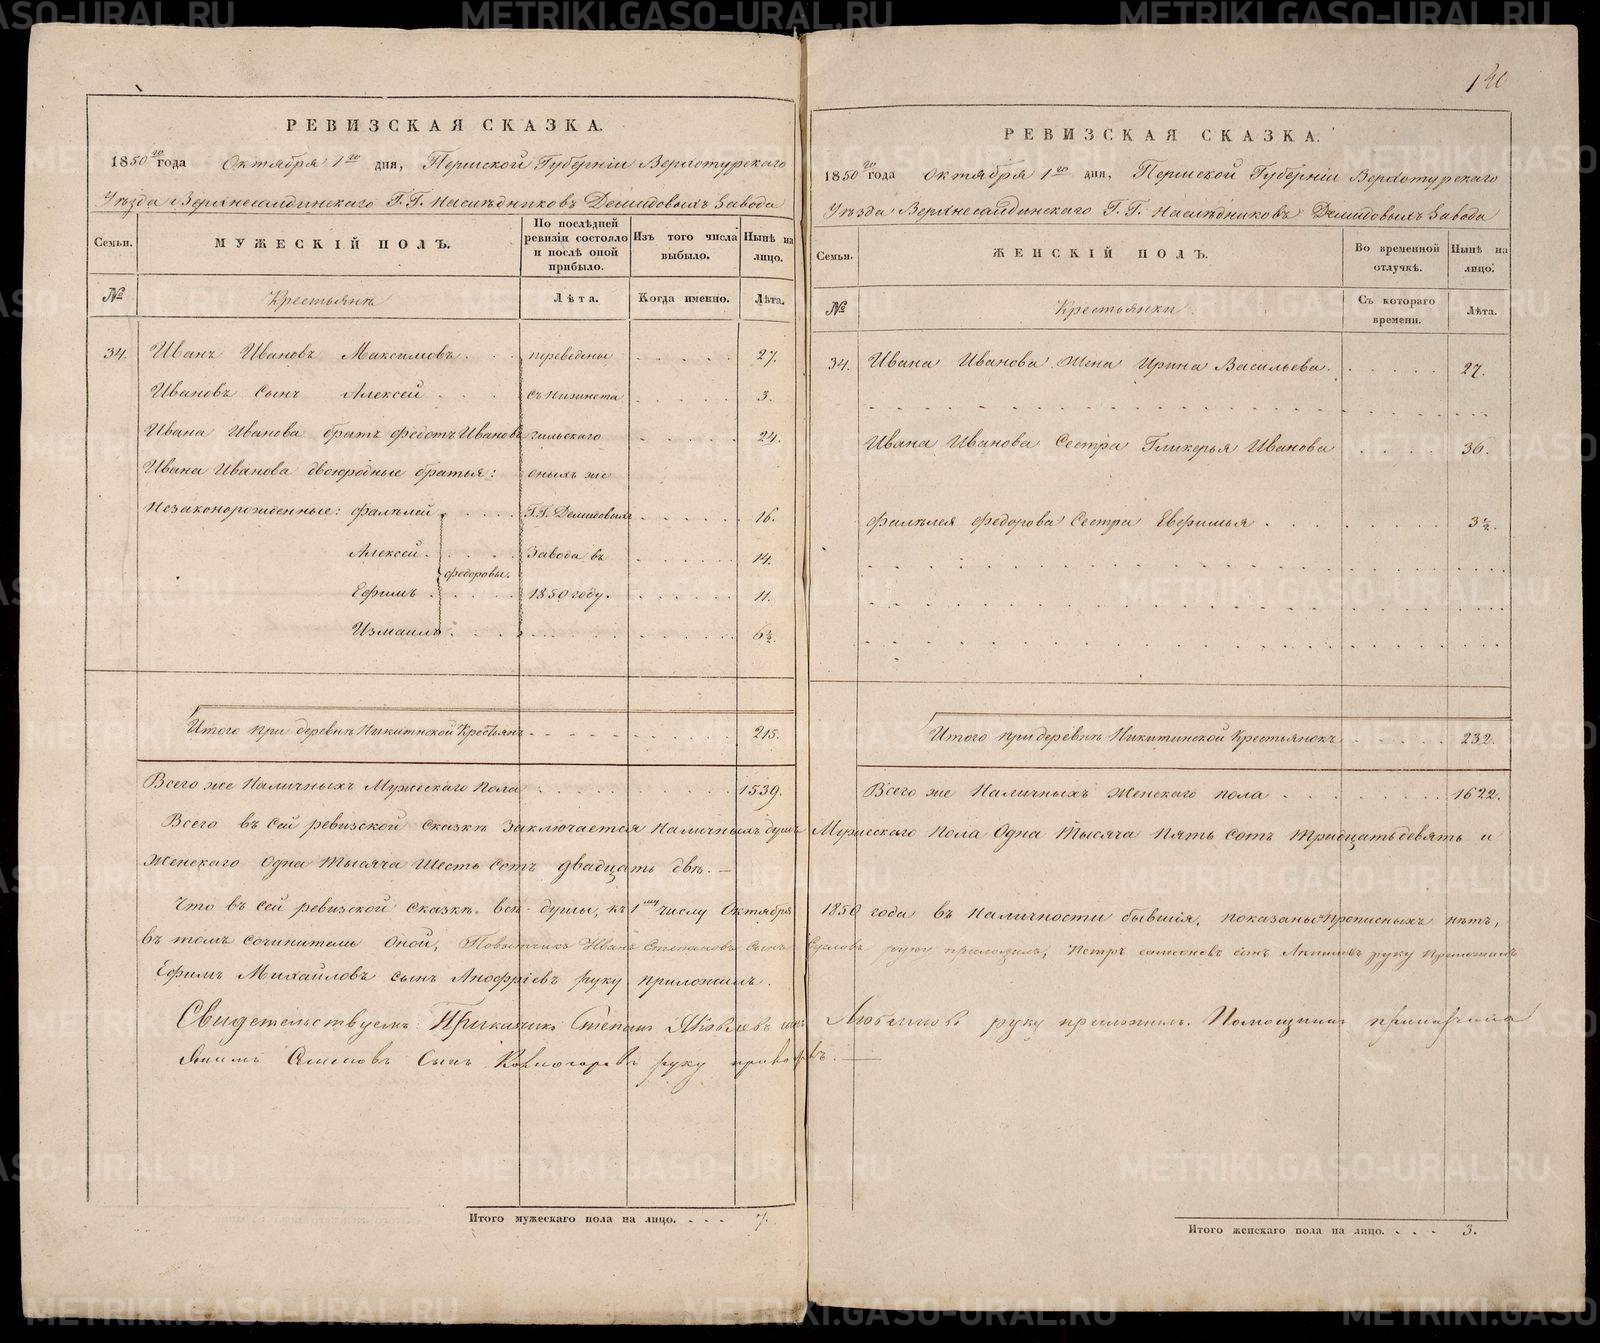 РЕВИЗСКАЯ СКАЗКА.
1850го года Октября 1го дня, Пермской Губерніи Верхотурскаго
Уѣзда Верхнесалдинскаго Г.Г. Наслѣдниковъ Демидовыхъ Завода
Семьи.
МУЖЕСКІЙ ПОЛЪ.
По послѣдней ревизіи состояло и послѣ оной прибыло.
Изъ того числа выбыло.
Нынѣ на лицо.
№
Крестьянъ
Лѣта.
Когда именно.
Лѣта.
34. Иванъ Ивановъ Максимовъ . . переведены . . . . . 27.
Ивановъ сынъ Алексей . . . . съ Нижнета . . . . . 3.
Ивана Иванова братъ Федотъ Ивановъ гильскаго . . . . . 24.
Ивана Иванова двоюродные братья: оныхъ же
Незаконорожденные: Фалѣлей . . . . Г.Г. Демидовыхъ . . . . . 16.
Алексей . . . . . Завода въ . . . . . 14.
Федоровы.
Ефимъ . . . . . 1850 году. . . . . . 11.
Измаилъ . . . . . . . . . 6½.
Итого при деревнѣ Никитинской Крестьянъ . . . . . . . . 215.
Всего же Наличныхъ Мужескаго Пола . . . . . . . . 1539.
Итого мужескаго пола на лицо. . . . 7.
140
РЕВИЗСКАЯ СКАЗКА.
1850го года Октября 1го дня, Пермской Губерніи Верхотурскаго
Уѣзда Верхнесалдинскаго Г.Г. Наслѣдниковъ Демидовыхъ Завода
Семьи.
ЖЕНСКІЙ ПОЛЪ.
Во временной отлучкѣ.
Нынѣ на лицо.
№
Крестьянки.
Съ котораго времени.
Лѣта.
34. Ивана Иванова Жена Ирина Васильева. . . . . . 27.
Ивана Иванова Сестра Гликерья Иванова . . . . 36.
Фалѣлея Федорова Сестра Евфимья . . . . . . . 3½.
Итого при деревнѣ Никитинской Крестьянокъ . . . . . . 232.
Всего же Наличныхъ Женскаго пола . . . . . . . 1622.
Всего въ сей ревизской сказкѣ заключается Наличныхъ душъ Мужескаго пола Одна тысяча пять сотъ тридцать девять и
Женскаго Одна тысяча шесть сотъ двадцать двѣ. —
Что въ сей ревизской сказкѣ всѣ души, къ 1му числу Октября 1850 года въ наличности бывшія, показаны и прописныхъ нѣтъ,
въ томъ сочинители оной, Повытчикъ Иванъ Степановъ Сынъ Сусловъ руку приложилъ, Петръ самсоновъ сынъ Акинѳов руку приложилъ
Ефимъ Михайловъ сынъ Анофріевъ руку приложилъ.
Свидетельствуемъ: Прикащикъ Степанъ Яковлевъ сынъ Любимовъ руку приложилъ. Помощникъ прикащика
Якимъ сынъ руку
Итого женскаго пола на лицо. . . . 3.
METRIKI.GASO-URAL.RU